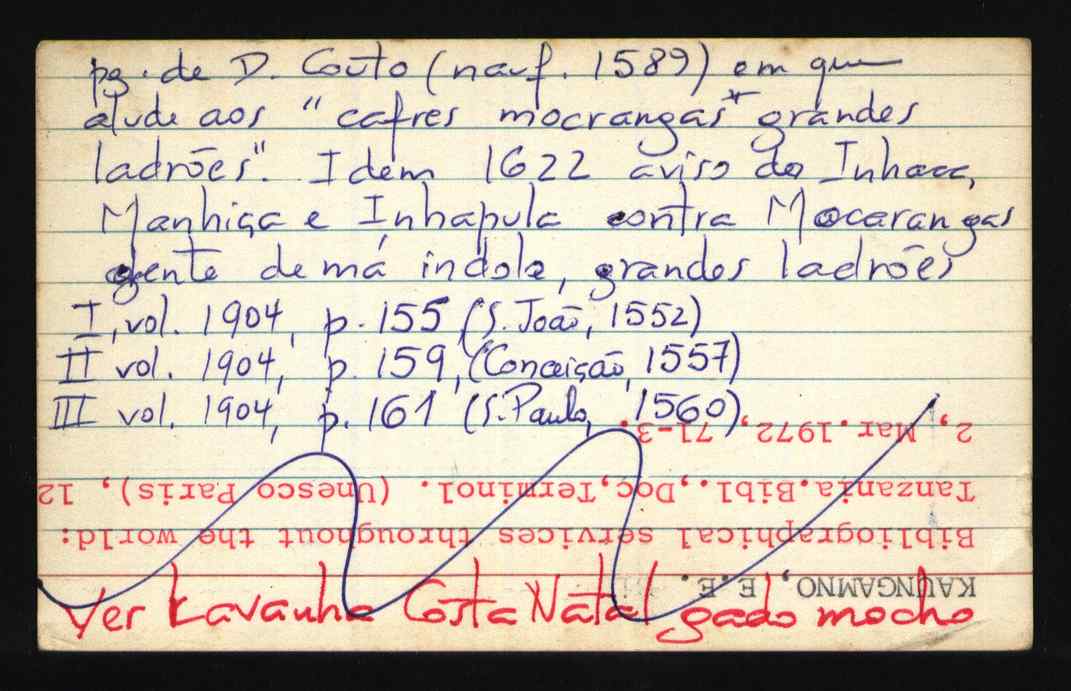 pg. de D. Couto (nauf. 1589) em que
alude aos "cafres mocrangas* grandes
ladrões". Idem 1622 aviso do Inhaca,
Manhiça e Inhapula contra Mocarangas
gente de má índole, grandes ladrões
I, vol. 1904, p. 155 (S. João, 1552)
II vol. 1904, p. 159, (Conceição, 1557)
III vol. 1904, p. 161 (S. Paulo, 1560)
Ver Lavanha Costa Natal gado mocho
KAUNGAMNO, E.E.
Bibliographical services throughout the world:
Tanzania.Bibl.,Doc,Terminol. (Unesco Paris), 12
2, Mar.1972, 71-3.